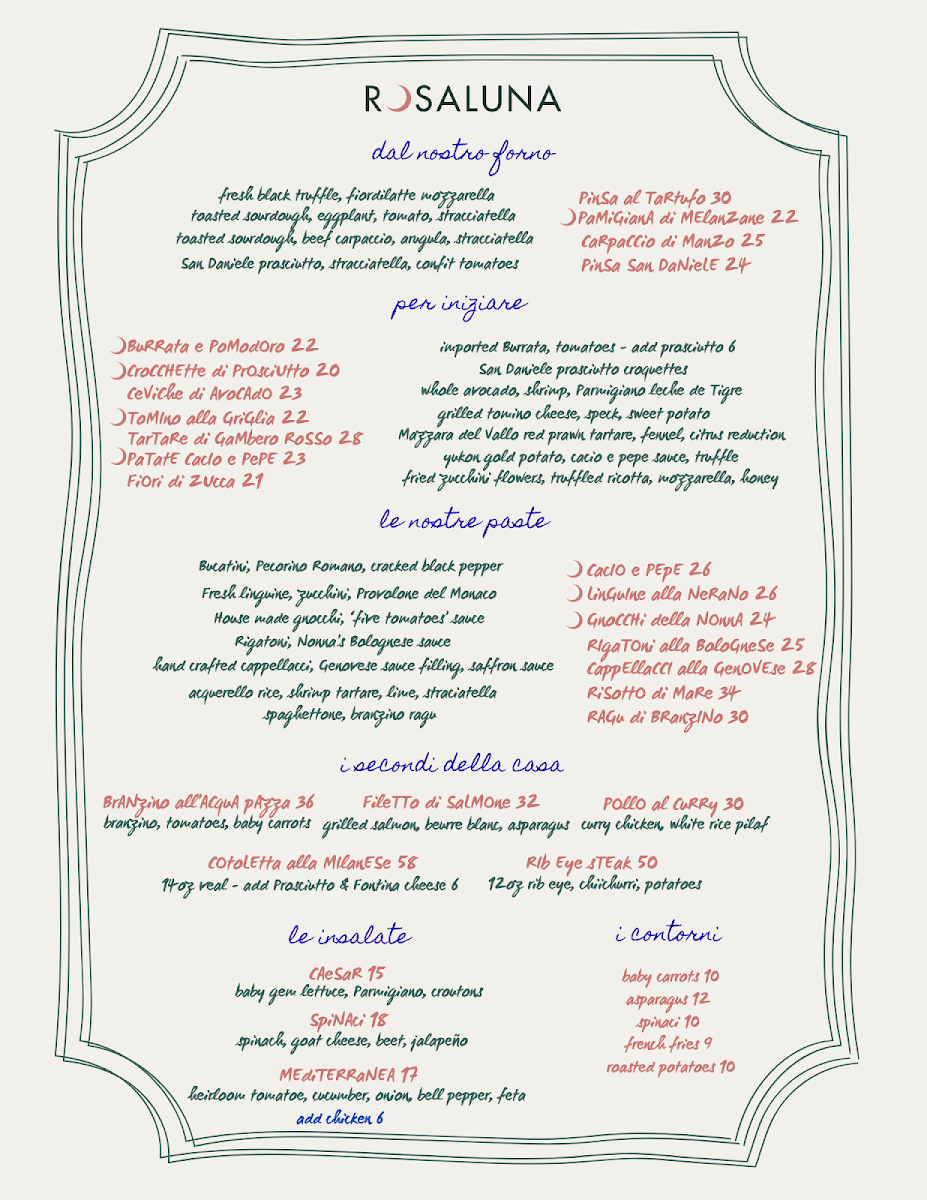 ROSALUNA
dal nostro forno
fresh black truffle, fiordilatte mozzarella PinSa al TaRtufo 30
toasted sourdough, eggplant, tomato, stracciatella PaMiGianA di MElanZane 22
toasted sourdough, beef carpaccio, arugula, stracciatella CaRpaCCio di ManZo 25
San Daniele prosciutto, stracciatella, confit tomatoes PinSa San DaNielE 24
per iniziare
BuRRata e PoModOro 22 imported Burrata, tomatoes - add prosciutto 6
CroCCHEtte di PrOsciUtto 20 San Daniele prosciutto croquettes
CeViChe di AvoCAdO 23 whole avocado, shrimp, Parmigiano leche de Tigre
ToMIno alla GriGlia 22 grilled tomino cheese, speck, sweet potato
TarTaRe di GaMbero RoSSo 28 Mazzara del Vallo red prawn tartare, fennel, citrus reduction
PaTatE CacIo e PePE 23 yukon gold potato, cacio e pepe sauce, truffle
FiOri di ZUcca 21 fried zucchini flowers, truffled ricotta, mozzarella, honey
le nostre paste
Bucatini, Pecorino Romano, cracked black pepper CacIO e PEpE 26
Fresh linguine, zucchini, Provolone del Monaco LinGuIne alla NeRaNo 26
House made gnocchi, 'five tomatoes' sauce GnoCCHi della NOnnA 24
Rigatoni, Nonna's Bolognese sauce RIgaTOni alla BoloGneSe 25
hand crafted cappellacci, Genovese sauce filling, saffron sauce CappEllaCCI alla GenOVEse 28
acquerello rice, shrimp tartare, lime, straciatella RiSottO di MaRe 34
spaghettone, branzino ragu RAGu di BRanzINo 30
i secondi della casa
BrANzino all'ACquA pAzza 36 FileTTo di SalMOne 32 POllO al CuRRy 30
branzino, tomatoes, baby carrots grilled salmon, beurre blanc, asparagus curry chicken, white rice pilaf
COtolEtta alla MIlanESe 58 RIb Eye sTEak 50
14oz veal - add Prosciutto & Fontina cheese 6 12oz rib eye, chiichurri, potatoes
le insalate
CAeSaR 15
baby gem lettuce, Parmigiano, croutons
SpiNAci 18
spinach, goat cheese, beet, jalapeño
MEdiTERRaNEA 17
heirloom tomatoe, cucumber, onion, bell pepper, feta
add chicken 6
i contorni
baby carrots 10
asparagus 12
spinaci 10
french fries 9
roasted potatoes 10